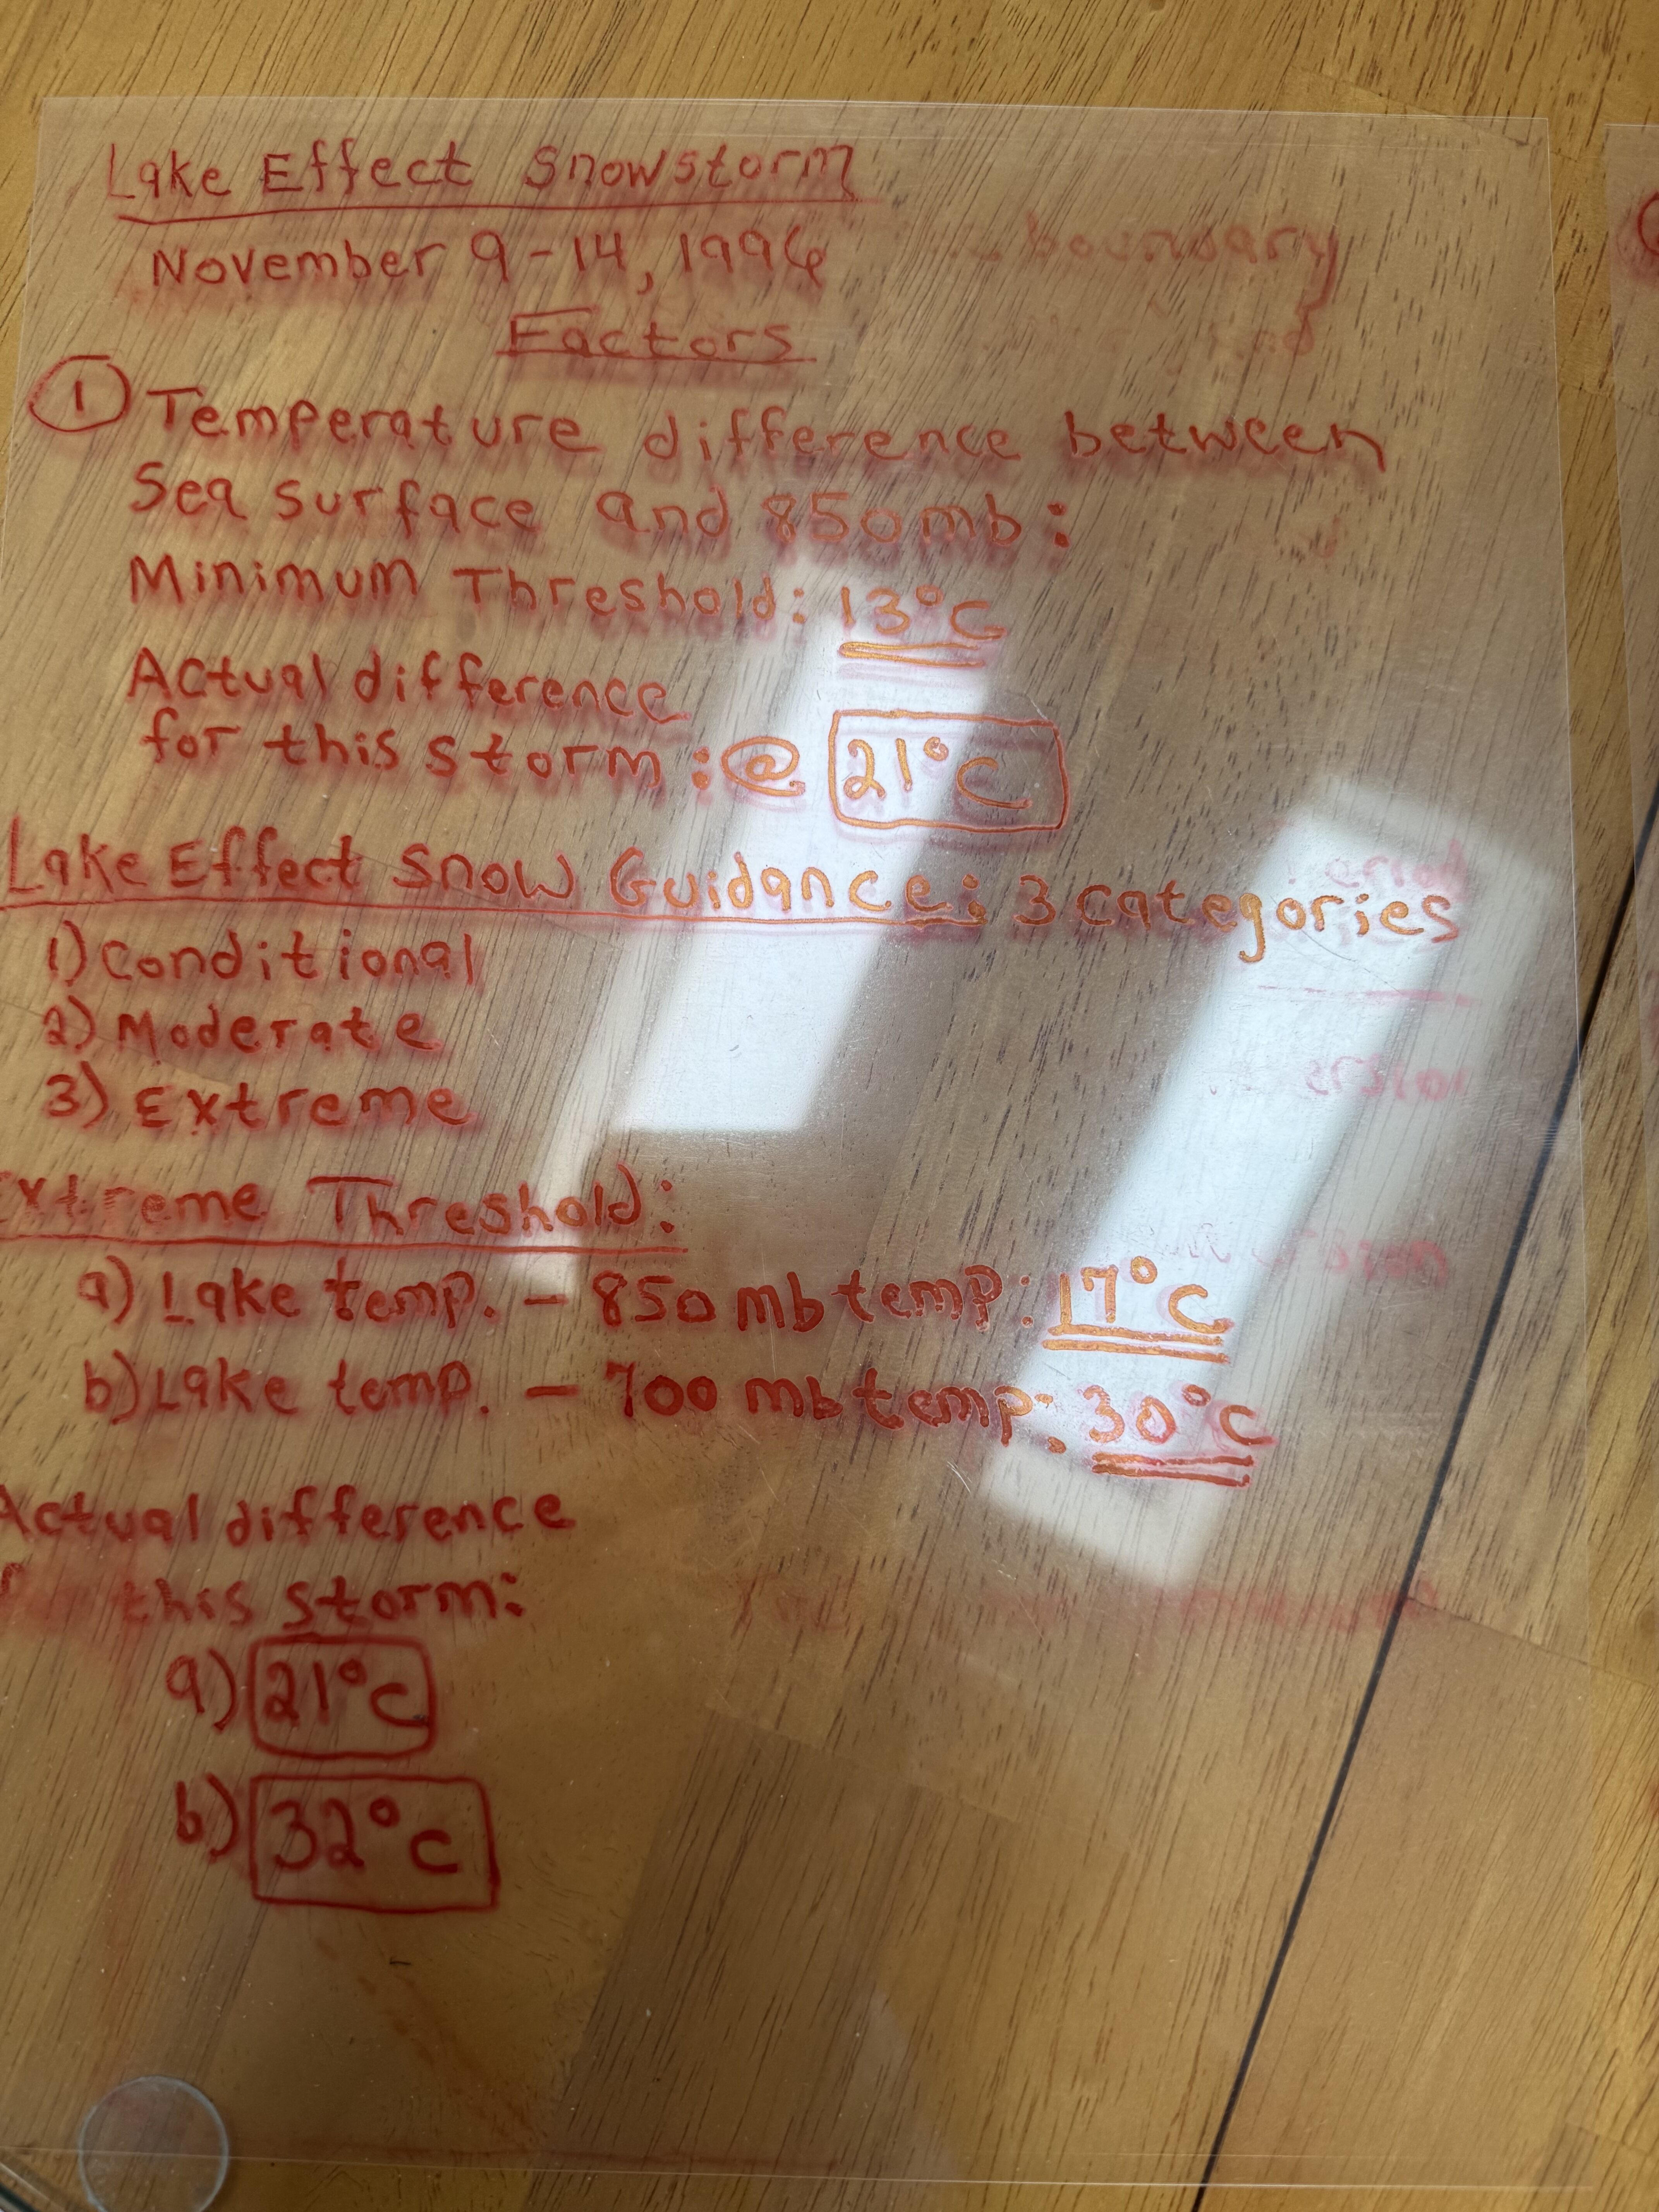 Lake Effect Snowstorm
November 9-14, 1996
boundary
Factors
① Temperature difference between
Sea surface and 850mb:
Minimum Threshold: 13°C
Actual difference
for this storm: @ 21°C
Lake Effect Snow Guidance: 3 categories
1) Conditional
2) Moderate
3) Extreme
Extreme Threshold:
a) Lake temp. - 850 mb temp: 17°C
b) Lake temp. - 700 mb temp: 30°C
Actual difference
this storm:
a) 21°C
b) 32°C